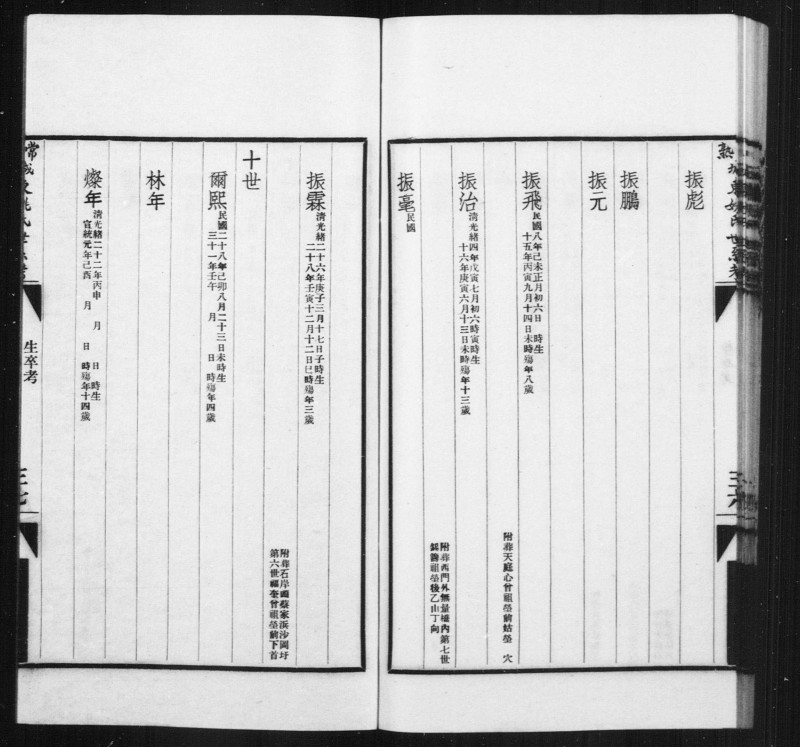 振彪
振鵬
振元
振飛
民國八年己未正月初六日　時生
十五年丙寅九月十四日未時殤年八歲
附葬天庭心曾祖塋前姑塋　穴
振治
清光緒四年戊寅七月初六時寅時生
十六年庚寅六月十三日未時殤年十三歲
附葬西門外無量橋內第七世
祖塋後乙山丁向
振毫
民國
振霖
清光緒二十六年庚子三月十七日子時生
二十八年壬寅十二月十二日巳時殤年三歲
附葬石岸頭蔡家浜沙圩
第六世曾祖塋前下首
十世
爾熙
民國二十八年己卯八月二十三日未時生
三十一年壬午　月　日　時殤年四歲
林年
燦年
清光緒二十二年丙申　月　日　時生
宣統元年己酉　月　日　時殤年十四歲
生卒考